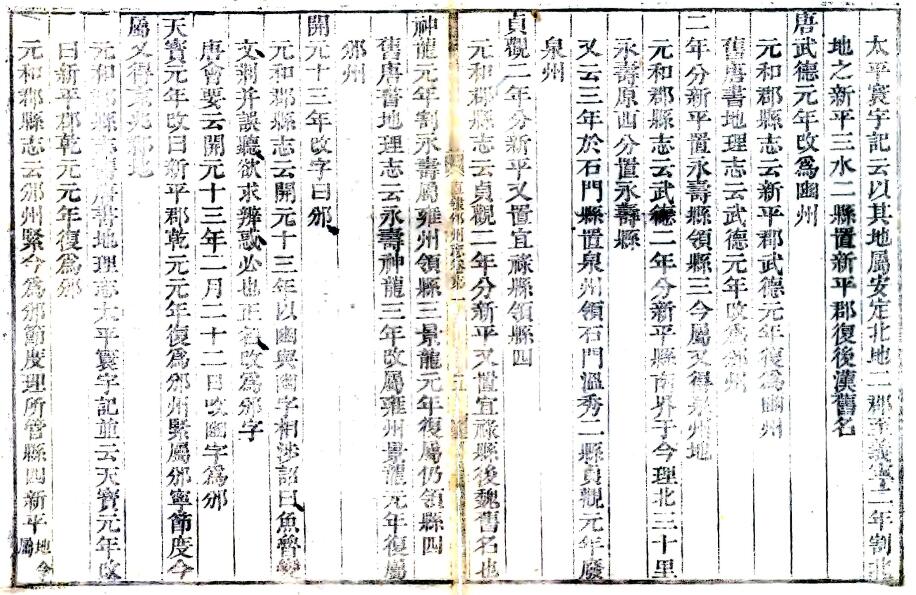 太平寰宇記云以其地屬安定北地二郡至義寧二年割北
地之新平三水二縣置新平郡復後漢舊名
唐武德元年改爲豳州
元和郡縣志云新平郡武德元年復爲豳州
舊唐書地理志云武德元年改爲豳州
二年分新平置永壽縣領縣三今屬又得泉州地
元和郡縣志云武德二年分新平縣南界于今理北三十里
永壽原西分置永壽縣
又云三年於石門縣置泉州領石門溫秀二縣貞觀元年廢
泉州
貞觀二年分新平又置宜祿縣領縣四
元和郡縣志云貞觀二年分新平又置宜祿縣後魏舊名也
直隸邠州志卷第一
神龍元年割永壽屬雍州領縣三景龍元年復屬仍領縣四
舊唐書地理志云永壽神龍三年改屬雍州景龍元年復屬
邠州
開元十三年改字曰邠
元和郡縣志云開元十三年以豳與幽字相涉詔曰魚魯變
文荆并誤聽欲求辨惑必也正名改爲邠字
唐會要云開元十三年二月二十二日改豳字爲邠
天寶元年改曰新平郡乾元元年復爲邠州緊屬邠寧節度今
屬又得 地
元和郡縣志舊唐書地理志太平寰宇記並云天寶元年改
曰新平郡乾元元年復爲邠
元和郡縣志云邠州緊今爲邠節度理所管縣四新平 地今屬